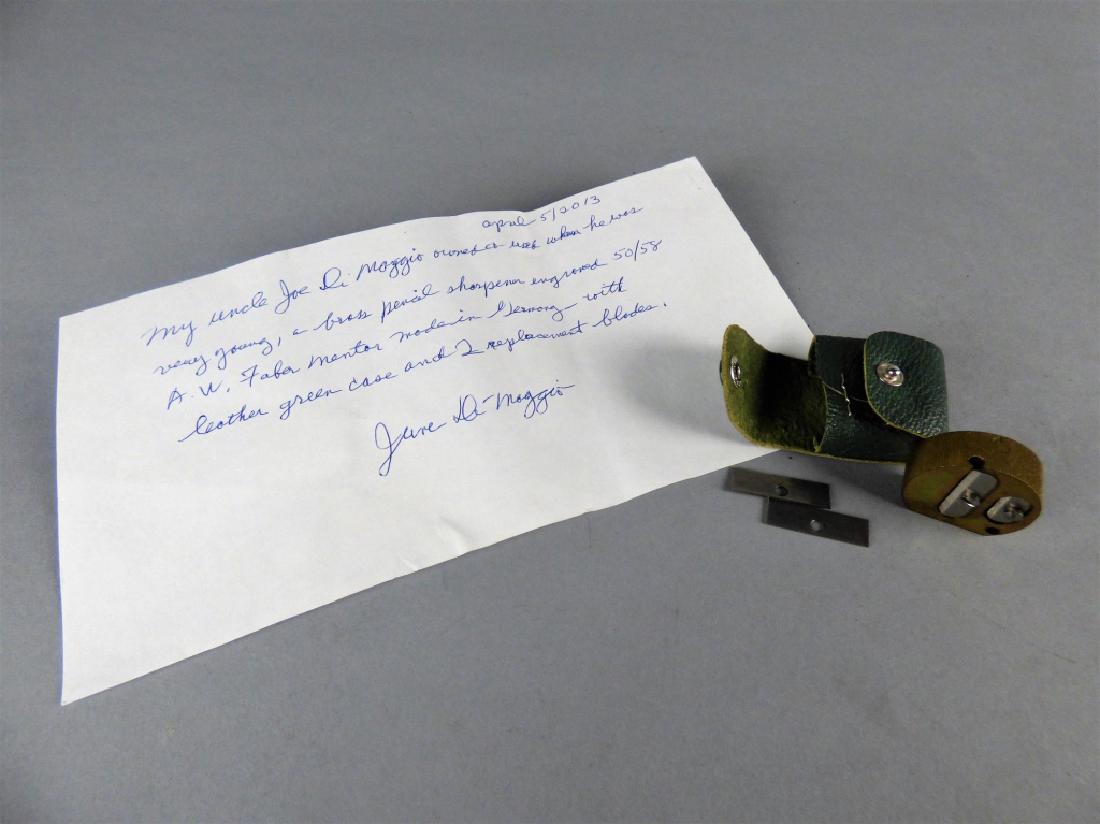 april 5/2013
My uncle Joe Di Maggio owned & used when he was
very young, a brass pencil sharpener engraved 50/58
A.W. Faber mentor made in Germany with
leather green case and 2 replacement blades.
June Di-Maggio